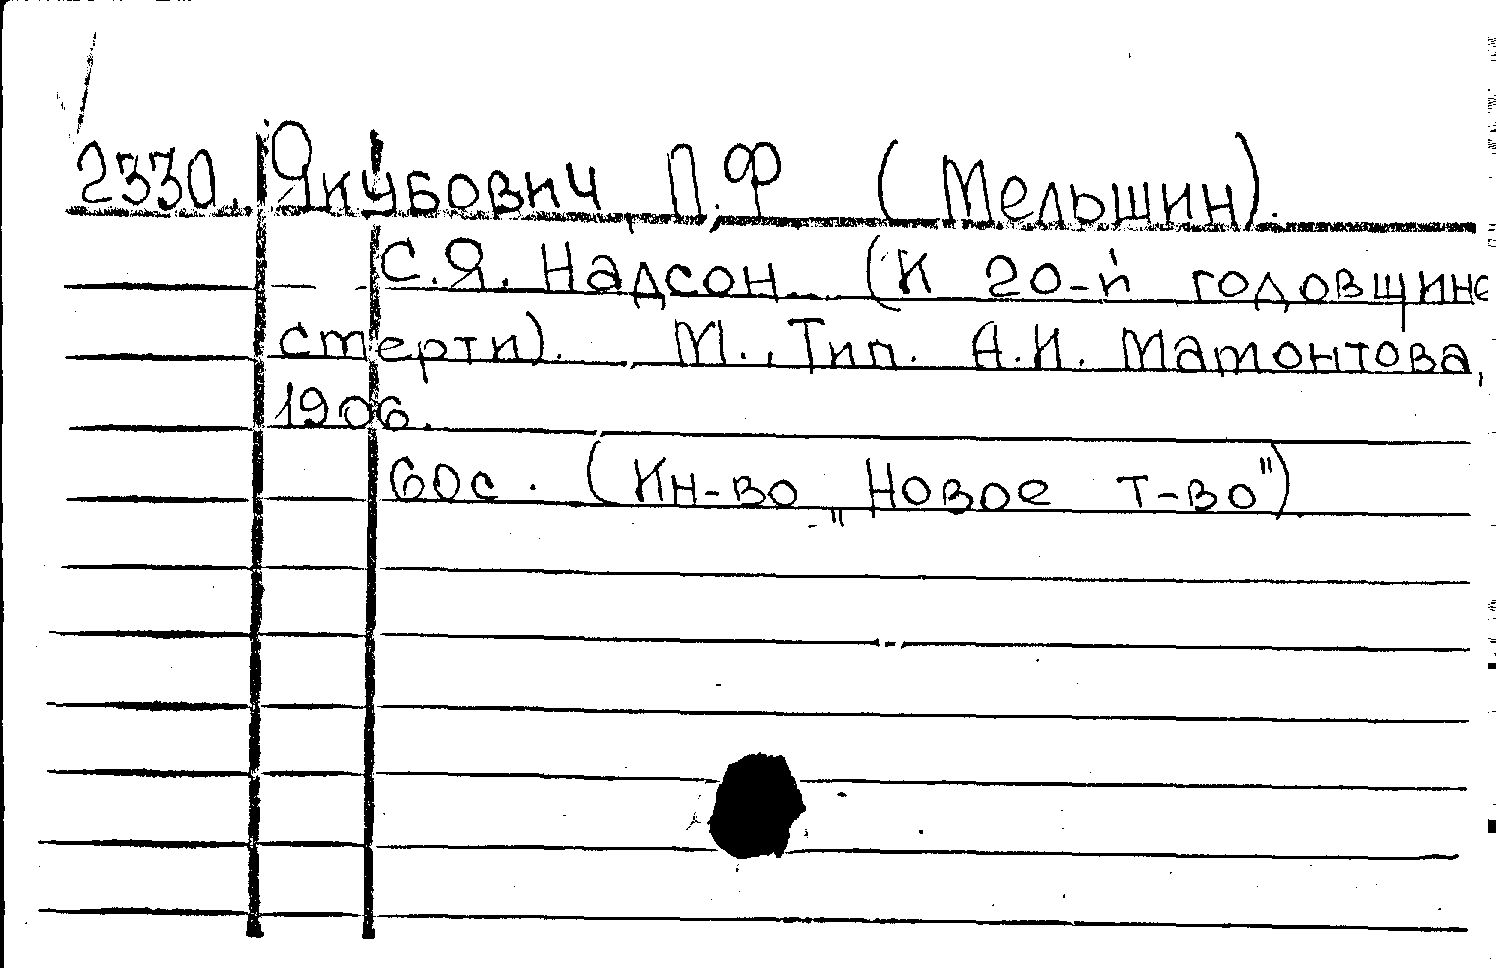 2330. Якубович, П.Ф (Мельшин).
С.Я. Надсон. (К 20-й годовщине
смерти). М., Тип. А.И. Мамонтова,
1906.
60с. (Кн-во „Новое т-во")